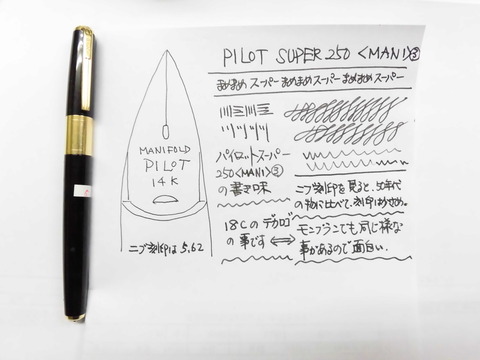 PILOT SUPER 250 〈MANI〉③
まめまめ スーパー まめまめ スーパー まめまめ スーパー
MANIFOLD
PILOT
14K
ニブ刻印は 5.62
パイロットスーパー
250〈MANI〉③
の書き味
18Cのデカロゴ
の事です
ニブ刻印を見ると、50年代
の物に比べて、刻印は
モンブランでも同じ様な
事があるので面白い.